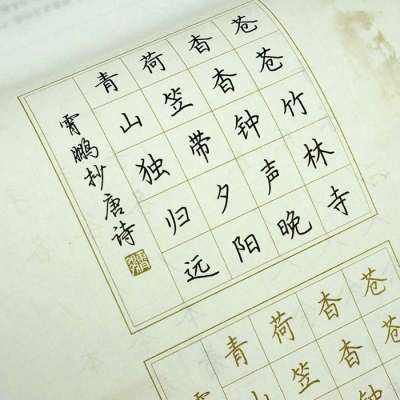 苍苍竹林寺
杳杳钟声晚
荷笠带夕阳
青山独归远
霄鹏抄唐诗
苍苍
杳杳钟
荷笠
青山
霄